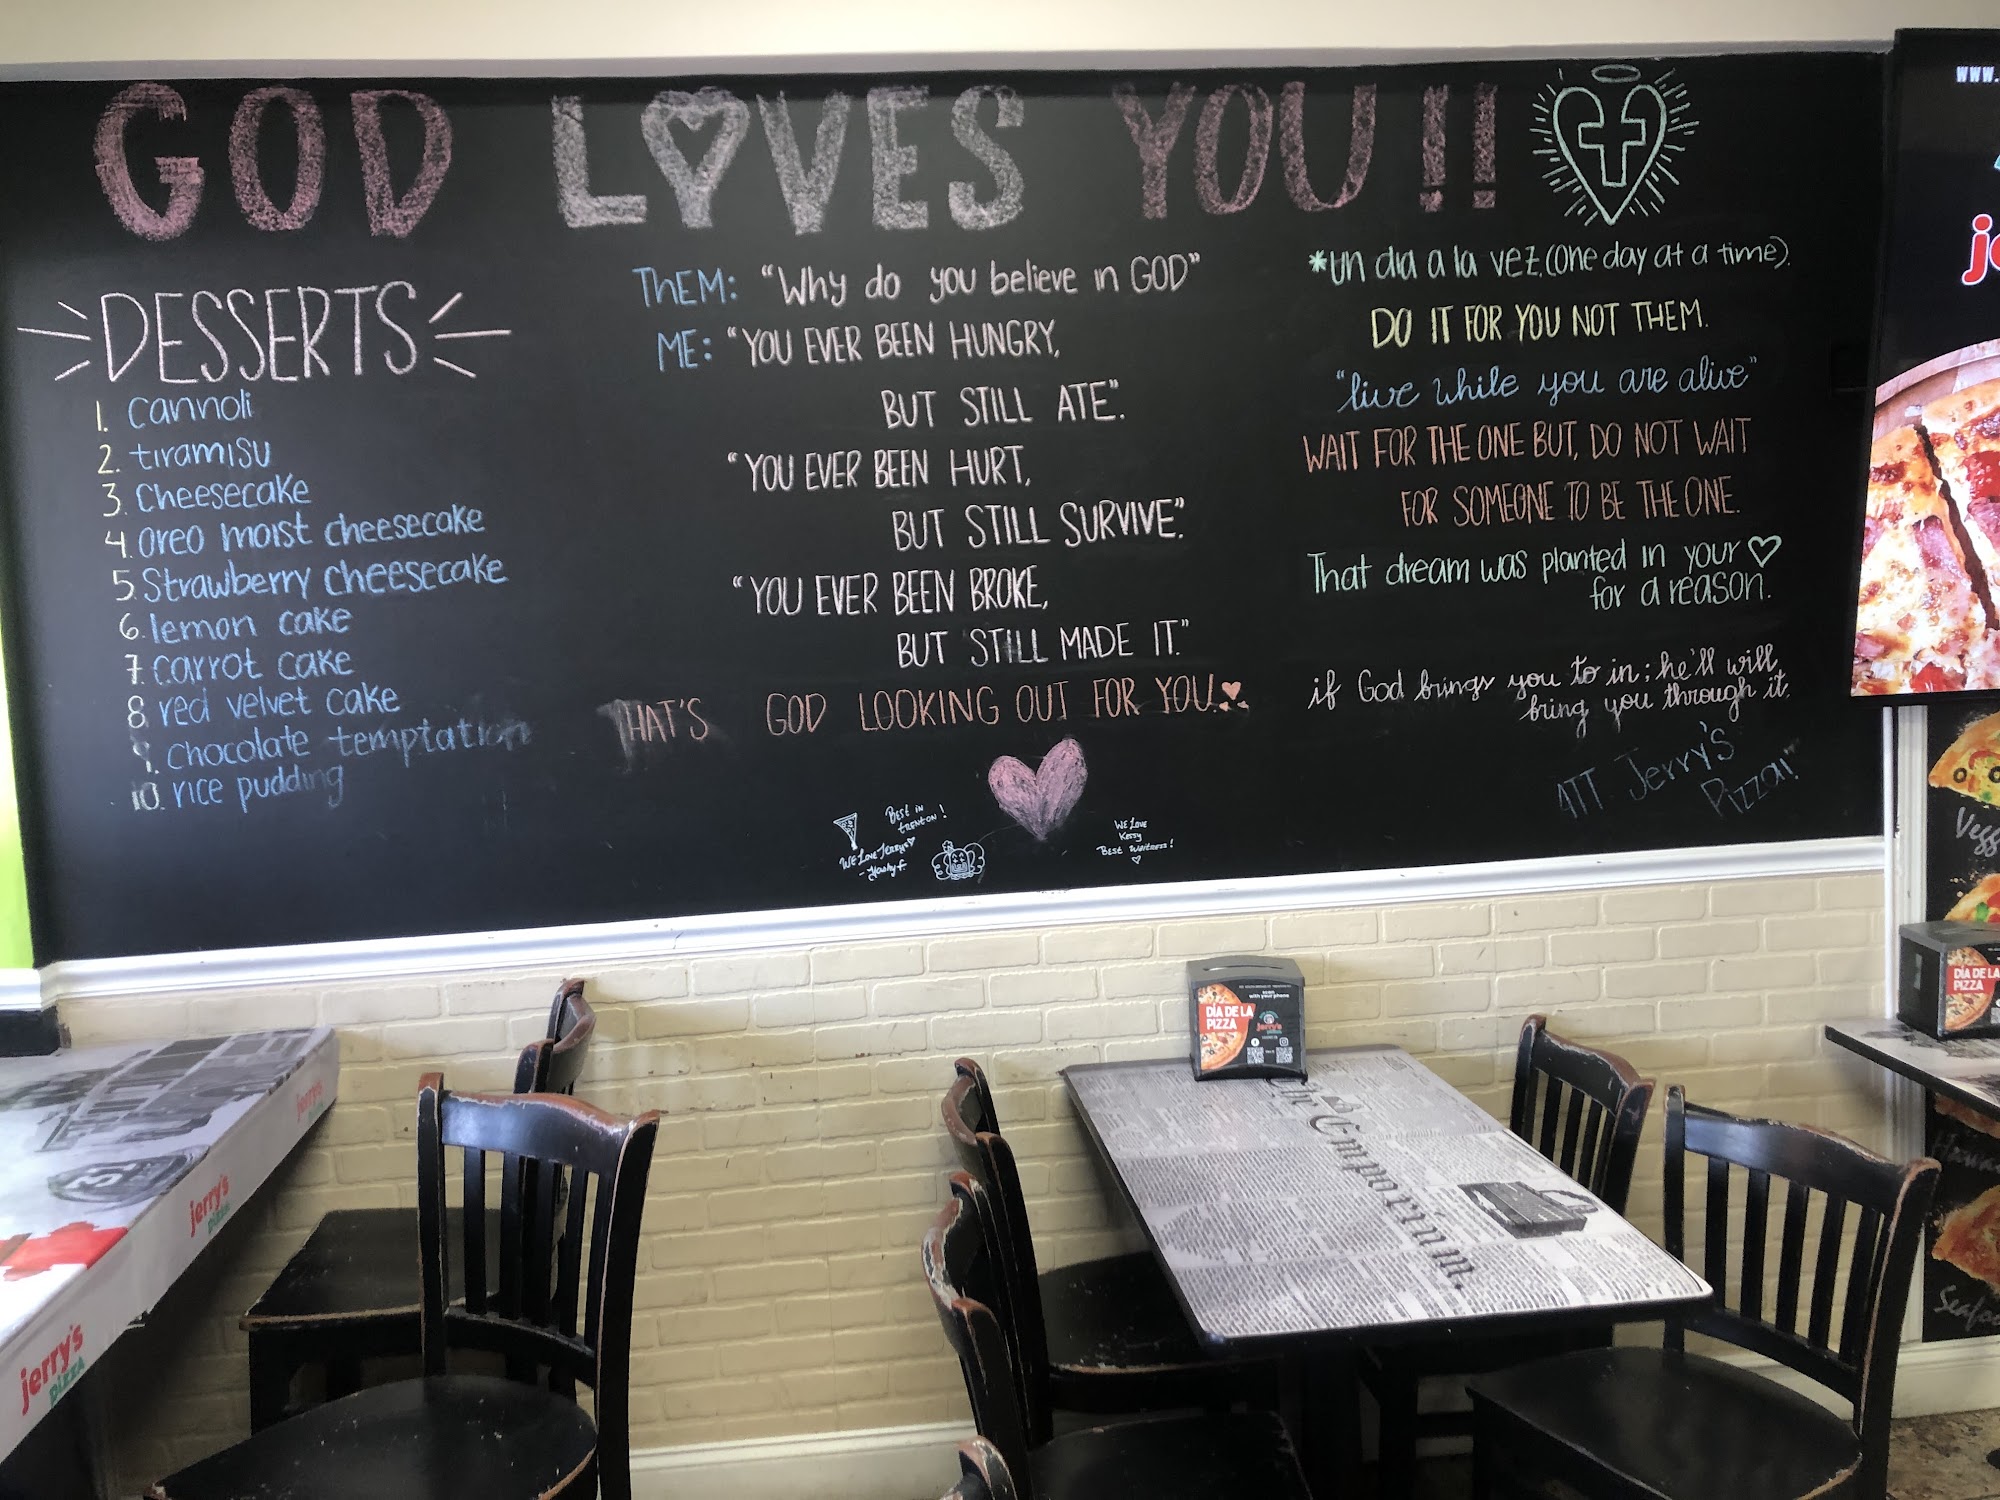 GOD LOVES YOU!!
DESSERTS
1. cannoli
2. tiramisu
3. cheesecake
4. oreo moist cheesecake
5. Strawberry cheesecake
6. lemon cake
7. carrot cake
8. red velvet cake
9. chocolate temptation
10. rice pudding
THEM: "Why do you believe in GOD"
ME: "YOU EVER BEEN HUNGRY,
BUT STILL ATE".
"YOU EVER BEEN HURT,
BUT STILL SURVIVE".
"YOU EVER BEEN BROKE,
BUT STILL MADE IT."
THAT'S GOD LOOKING OUT FOR YOU.
Best in
trenton!
WE Love Jerrys
WE Love
Kessy
Best Waitress!
*un dia a la vez.(one day at a time).
DO IT FOR YOU NOT THEM.
"live while you are alive"
WAIT FOR THE ONE BUT, DO NOT WAIT
FOR SOMEONE TO BE THE ONE.
That dream was planted in your
for a reason.
if God brings you to in; he'll will
bring you through it.
ATT. Jerry's
Pizza!
WWW.
je
Vegg
Hawa
Seafo
DÍA DE LA
PIZZA
scan
with your phone
jerry's
DÍA DE LA
PIZZA
The Emporium.
jerry's
jerry's
PIZZA
jerry's
PIZZA